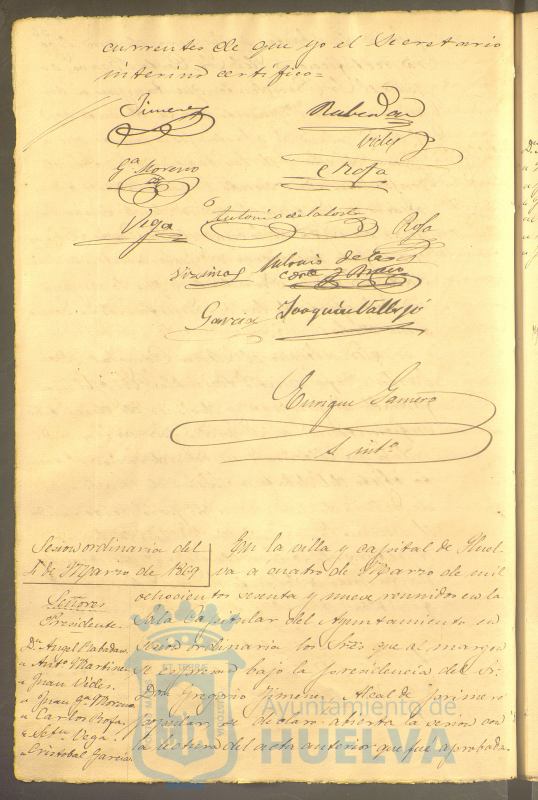 currentes de que yo el Secretario
interino certifico=
Jimenez
Rabadan
Vides
Ga Moreno
C Rofa
Vega
Antonio de la Corte
Rofa
Antonio de la
Corte y Bravo
Garcia
Joaquin Vallejo
Enrique Gamero
S. intº
Sesion ordinaria del
4 de Marzo de 1869
Señores
Presidente
Dn Angel Rabadan
" Antº Martinez
" Juan Vides
" Juan Ga Moreno
" Carlos Rofa
" Sebn Vega
" Cristobal Garcia
En la villa y capital de Huel-
va a cuatro de Marzo de mil
ochocientos sesenta y nueve reunidos en la
Sala Capitular del Ayuntamiento en
Sesion ordinaria los Sres que al margen
se espresan bajo la presidencia del Sr.
Don Gregorio Jimenez Alcalde primero
popular, se declaro abierta la sesion con
la lectura del acta anterior que fue aprobada.
Ayuntamiento de
HUELVA